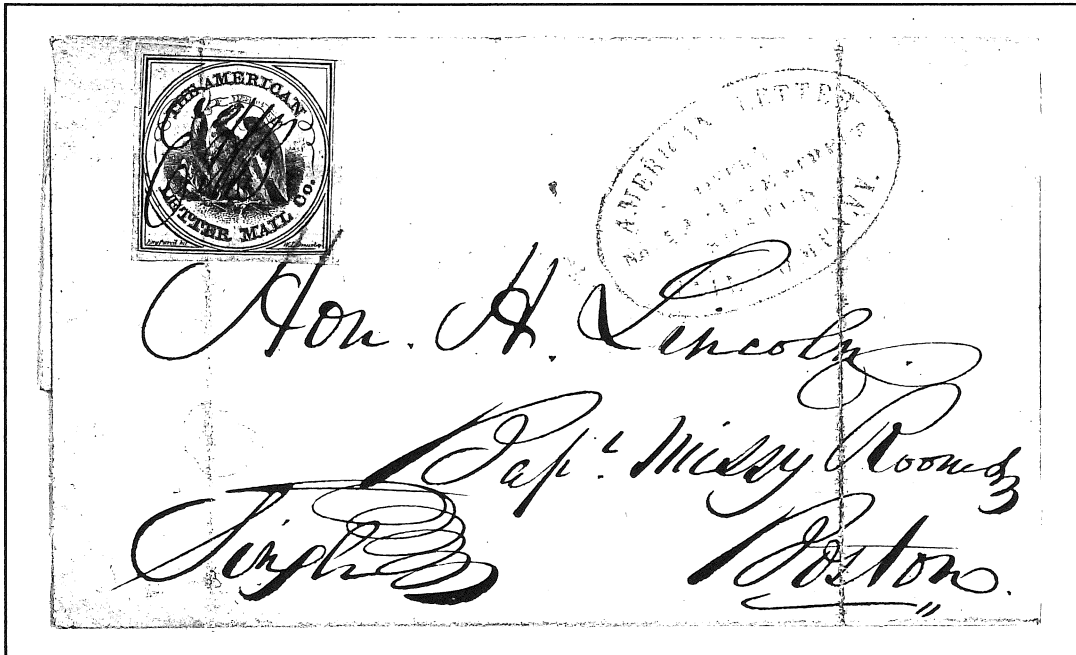 THE AMERICAN
LETTER MAIL Co.
AMERICAN LETTER
COMPANY
Hon. H. Lincoln.
Bapt. Missy Rooms
Single
Boston.